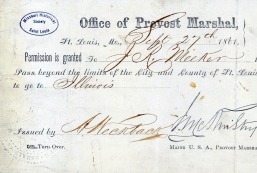 Missouri Historical
Society
Saint Louis
Office of Provost Marshal,
St. Louis, Mo., Sept 27th 1861.
Permission is granted To J. R. Meeker
Pass beyond the limits of the City and County of St. Louis
to go to Illinois
Issued by
Turn Over.
Major U. S. A., Provost Marshal